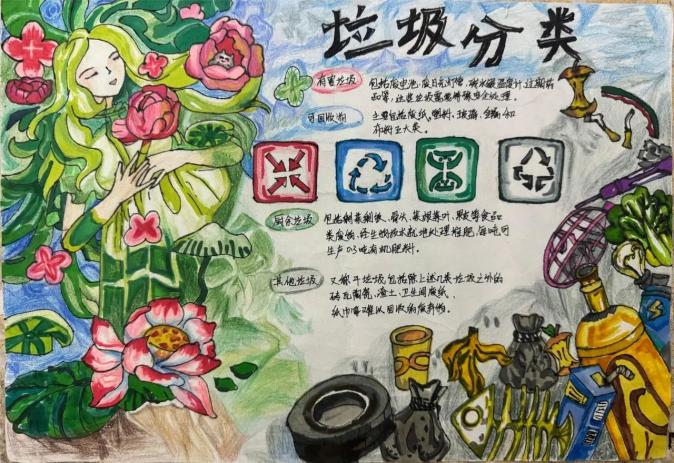 垃圾分类
有害垃圾 包括废电池、废日光灯管、废水银温度计、过期药
品等，这些垃圾需要特殊安全处理。
可回收物 主要包括废纸、塑料、玻璃、金属和
布料五大类。
厨余垃圾 包括剩菜剩饭、骨头、菜根菜叶、果皮等食品
类废物，经生物技术就地处理堆肥，每吨可
生产0.3吨有机肥料。
其他垃圾 又称干垃圾，包括除上述几类垃圾之外的
砖瓦陶瓷、渣土、卫生间废纸、
纸巾等难以回收的废弃物。